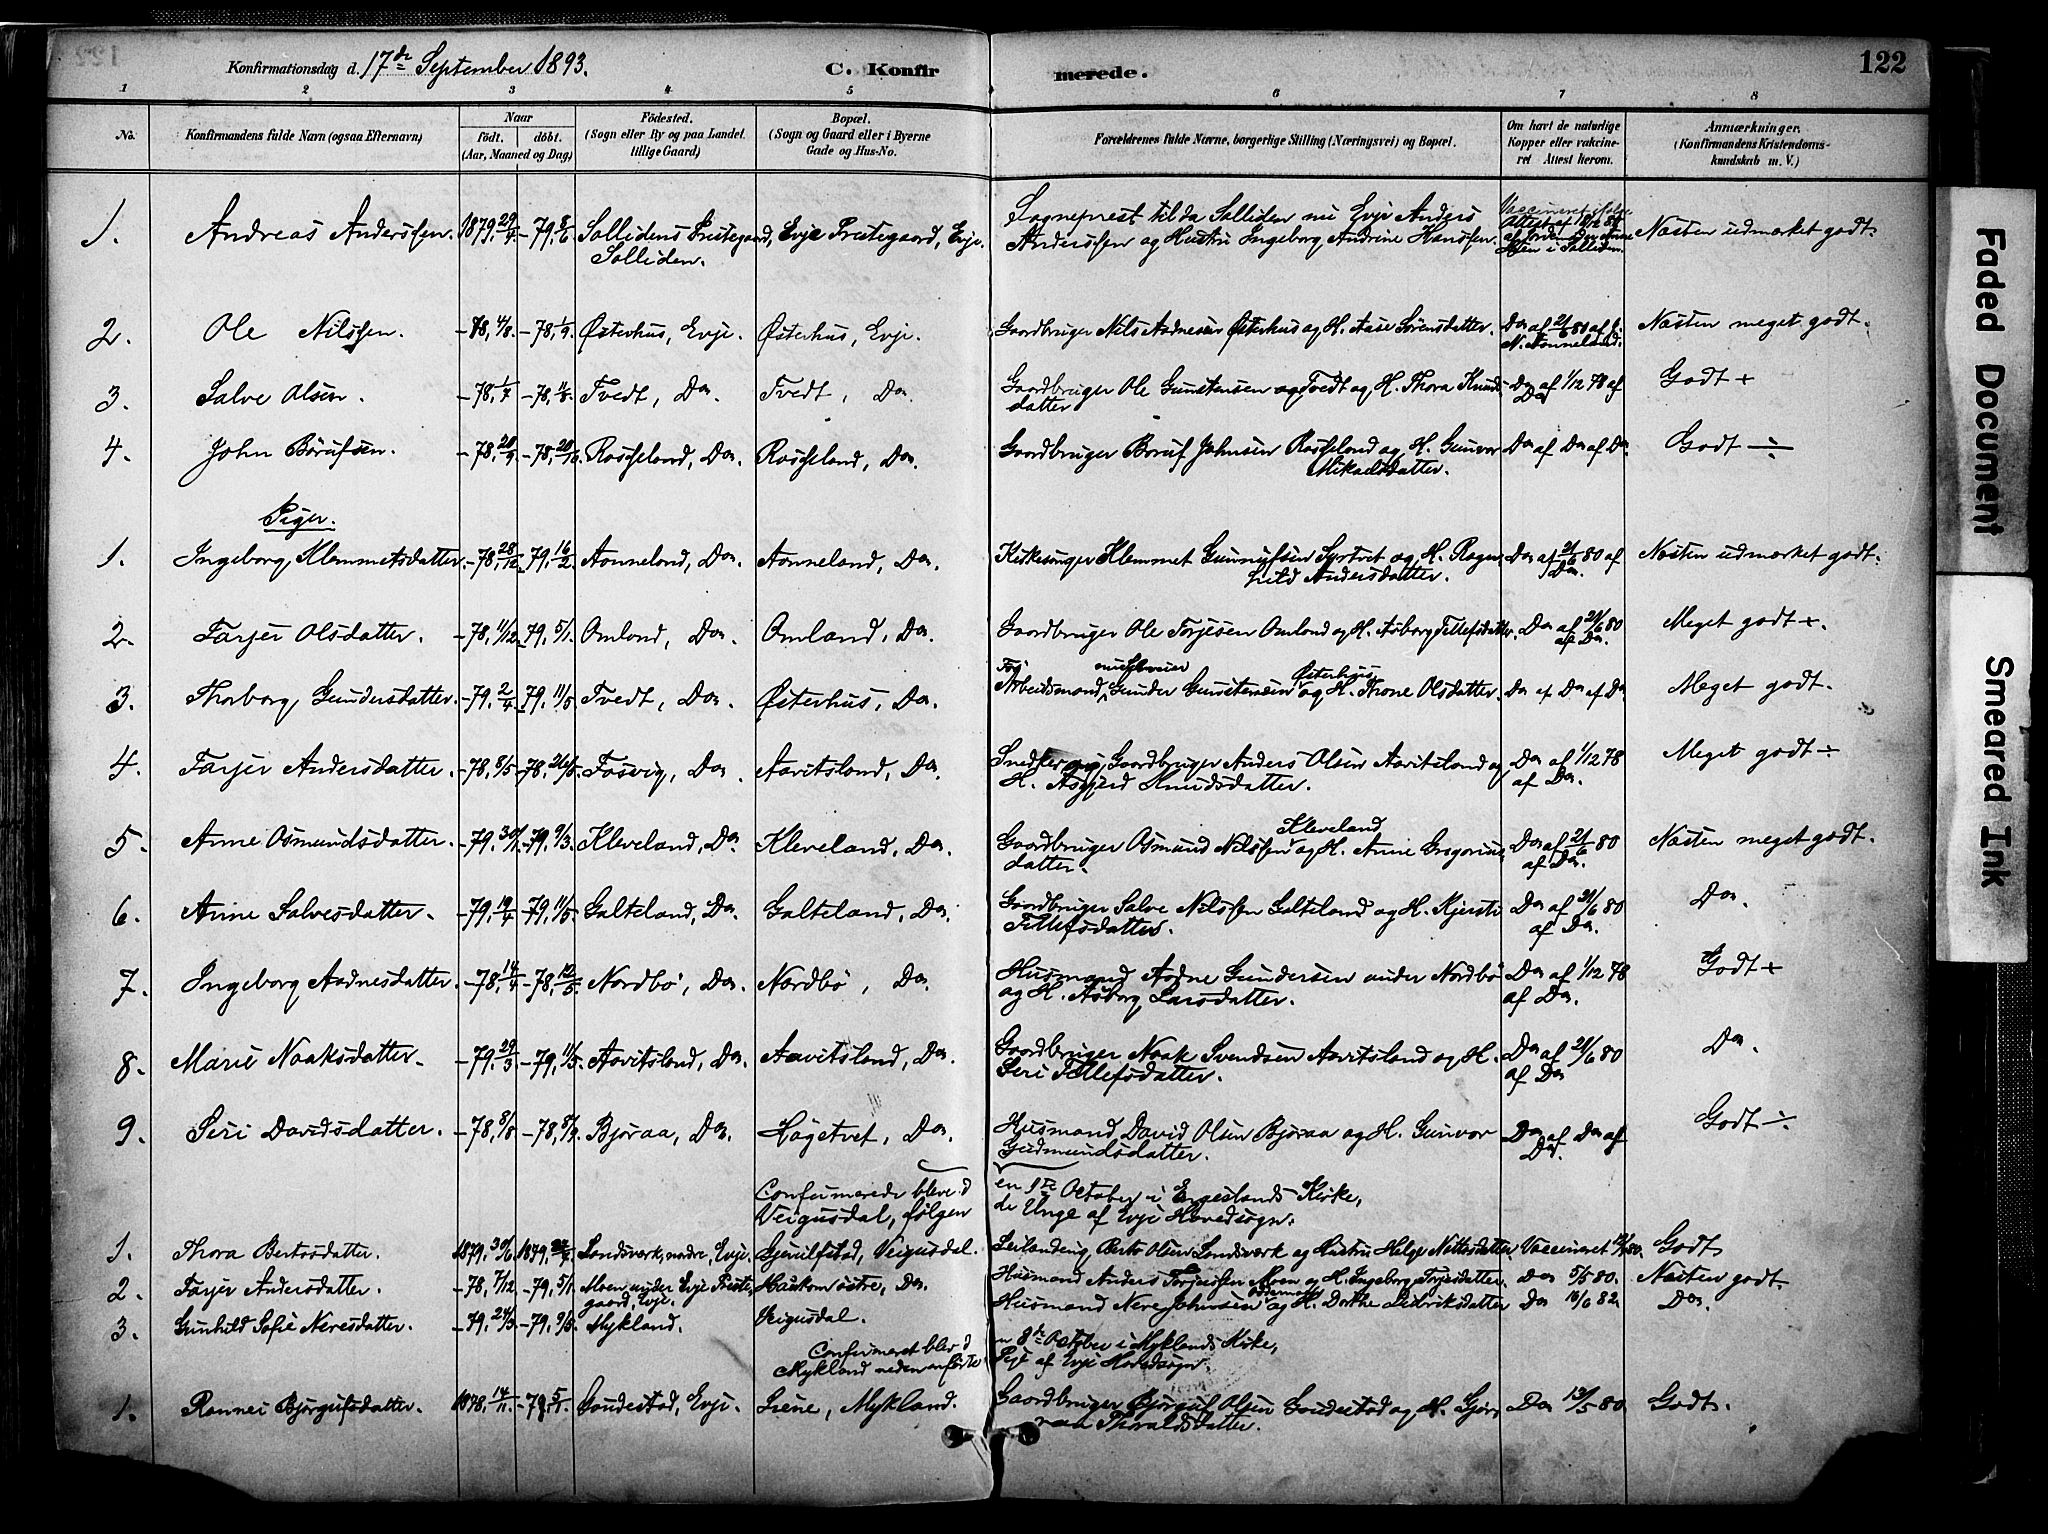 Konfirmationsdag d. 17de September 1893. C. Konfirmerede. 122
1 2 3 4 5 6 7 8
No. Konfirmandens fulde Navn (ogsaa Efternavn) Naar født. døbt. (Aar, Maaned og Dag) Fødested. (Sogn eller By og paa Landet tillige Gaard) Bopæl. (Sogn og Gaard eller i Byerne Gade og Hus-No. Forældrenes fulde Navne, borgerlige Stilling (Næringsvei) og Bopæl. Om havt de naturlige Kopper eller vaccineret. Attest herom. Anmærkninger. (Konfirmandens Kristendomskundskab m. V.)
1. Andreas Anderssen. 1879, 29/4. -79, 8/6. Sollidens Prestegaard, Solliden. Evje Prestegaard, Evje. Sogneprest til da Solliden nu Evje Anders Anderssen og Hustru Ingeborg Andrine Hanssen. Næsten udmærket godt.
2. Ole Nilssen. -78, 4/8. -78, 1/9. Østerhus, Evje. Østerhus, Evje. Gaardbruger Nils Aadnesen Østerhus og H. Aase Sørensdatter. Do af 21/6 80 af N. Aonneland. Næsten meget godt.
3. Salve Olsen. -78, 1/7 -78, 11/8. Tvedt, Do. Tvedt, Do. Gaardbruger Ole Gunstensen Tvedt og H. Thora Knudsdatter Do af 1/12 78 af Do Godt +
4. John Børufsen. -78, 20/9 -78, 20/10. Rosseland, Do. Rosseland, Do. Gaardbruger Boruf Johnsen Rosseland og H. Gunvor Mikaelsdatter. Do af Do af Do. Godt ÷
Piger.
1. Ingeborg Klemmetsdatter. -78, 28/12. -79, 16/2. Aonneland, Do. Aonneland, Do. Kirkesanger Klemmet Gunnufsen Syrtvet og H. Ragnhild Andersdatter. Do af 21/6 80 af Do. Næsten udmærket godt.
2. Tarjer Olsdatter. -78, 11/12. -79, 5/1. Omland, Do. Omland, Do. Gaardbruger Ole Torjesen Omland og H. Asborg Tellefsdatter. Do af 21/6 80 af Do. Meget godt +.
3. Thorborg Gundersdatter. -79, 2/4 -79, 11/5. Tvedt, Do. Østerhus, Do. Arbeidsmand, Gunder Gunstensen Østerhus og H. Thone Olsdatter. Do af Do af Do Meget godt.
4. Tarjer Andersdatter. -78, 8/5 -78, 26/5. Fosvig, Do. Aavitsland, Do. Snedker og Gaardbruger Anders Olsen Aavitsland og H. Asgjerd Knudsdatter. Do af 1/12 78 af Do. Meget godt ÷
5. Anne Osmundsdatter. -79, 30/1. -79, 9/3. Kleveland, Do. Kleveland, Do. Gaardbruger Osmund Nilssen Kleveland og H. Anne Gregoriusdatter. Do af 21/6 80 af Do. Næsten meget godt.
6. Anne Salvesdatter. -79, 19/4 -79, 11/5 Galteland, Do. Galteland, Do. Gaardbruger Salve Nilssen Galteland og H. Kjersti Tellefsdatter. Do af 21/6 80 af Do. Do.
7. Ingeborg Aadnesdatter. -78, 14/4 -78, 12/5. Nordbø, Do. Nordbø, Do. Husmand Aadne Gundersen under Nordbø og H. Asborg Larsdatter. Do af 1/12 78 af Do. Godt +
8. Marie Noaksdatter. -79, 29/3 -79, 11/5. Aavitsland, Do. Aavitsland, Do. Gaardbruger Noak Svendsen Aavitsland og H. Seri Tellefsdatter. Do af 21/6 80 af Do Do.
9. Seri Davidsdatter. -78, 8/8 -78, 8/9. Bjøraa, Do. Høgetvet, Do. Husmand David Olsen Bjøraa og H. Gunvor Gudmundsdatter. Do af Do af Do. Godt ÷
Confirmerede bleve den 1ste October i Engeslands Kirke,
Veigusdal, følgende Unge af Evje Hovedsogn:
1. Thora Bertosdatter. 1879, 30/6 1879, Landsverk, nedre, Evje. Gjerulfstad, Veigusdal. Leilænding Berto Olsen Landsverk og Hustru Helge Nottosdatter. Vaccineret Godt
2. Tarjer Andersdatter. -78, 7/12 -79, 5/1. Moen under Evje Prestegaard, Evje. Haukom østre, Do. Husmand Anders Torjussen Moen og H. Ingeborg Torjesdatter. Do 5/5 80. Næsten godt
3. Gunhild Sofie Neresdatter. -79, 24/3 -79, 9/5. Mykland. Veigusdal. Husmand Nere Johnsen og H. Dorthe Didriksdatter Do 16/6 82. Do.
Confirmeret blev den 8de October i Myklands Kirke,
Mykland nedenanførte Pige af Evje Hovedsogn.
1. Rannei Bjørgufsdatter. 1878, 14/11. -79, 5/1. Gaudestad, Evje. Liene, Mykland. Gaardbruger Bjørguf Olsen Gaudestad og H. Thoraldsdatter. Do 13/5 80 Godt.
Faded Document
Smeared Ink